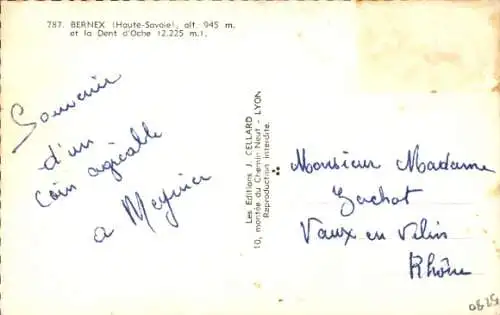 787. BERNEX (Haute-Savoie), alt. 945 m.
et la Dent d'Oche (2.225 m.).
Souvenir
d'un
coin agréable
a Meynier
Les Editions J. CELLARD
10, montée du Chemin Neuf - LYON
Reproduction interdite.
Monsieur Madame
Gachot
Vaux en Velin
Rhône